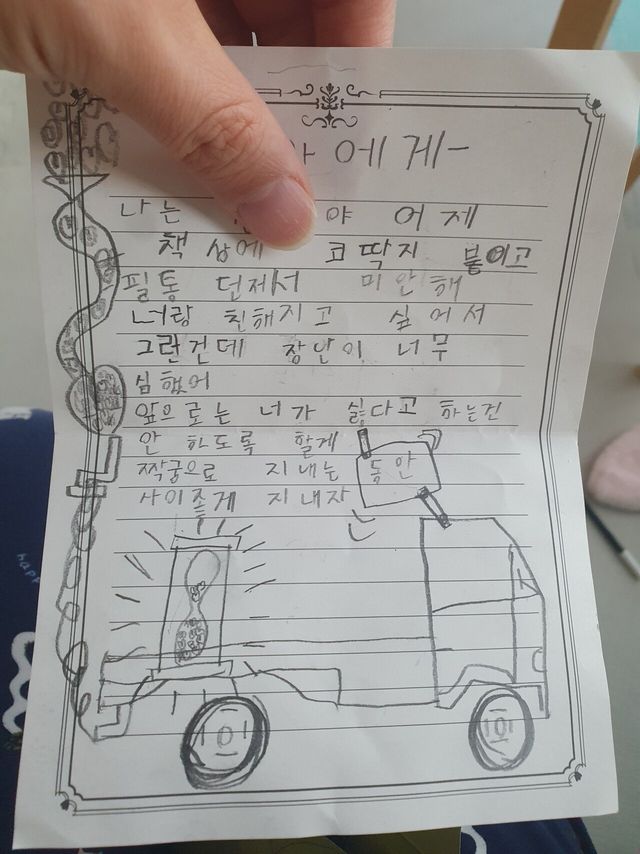 에게-
나는 야 어제
책상에 코딱지 붙이고
필통 던져서 미안해
너랑 친해지고 싶어서
그런건데 장난이 너무
심했어
앞으로는 너가 싫다고 하는건
안 하도록 할게
짝궁으로 지내는 동안
사이좋게 지내자